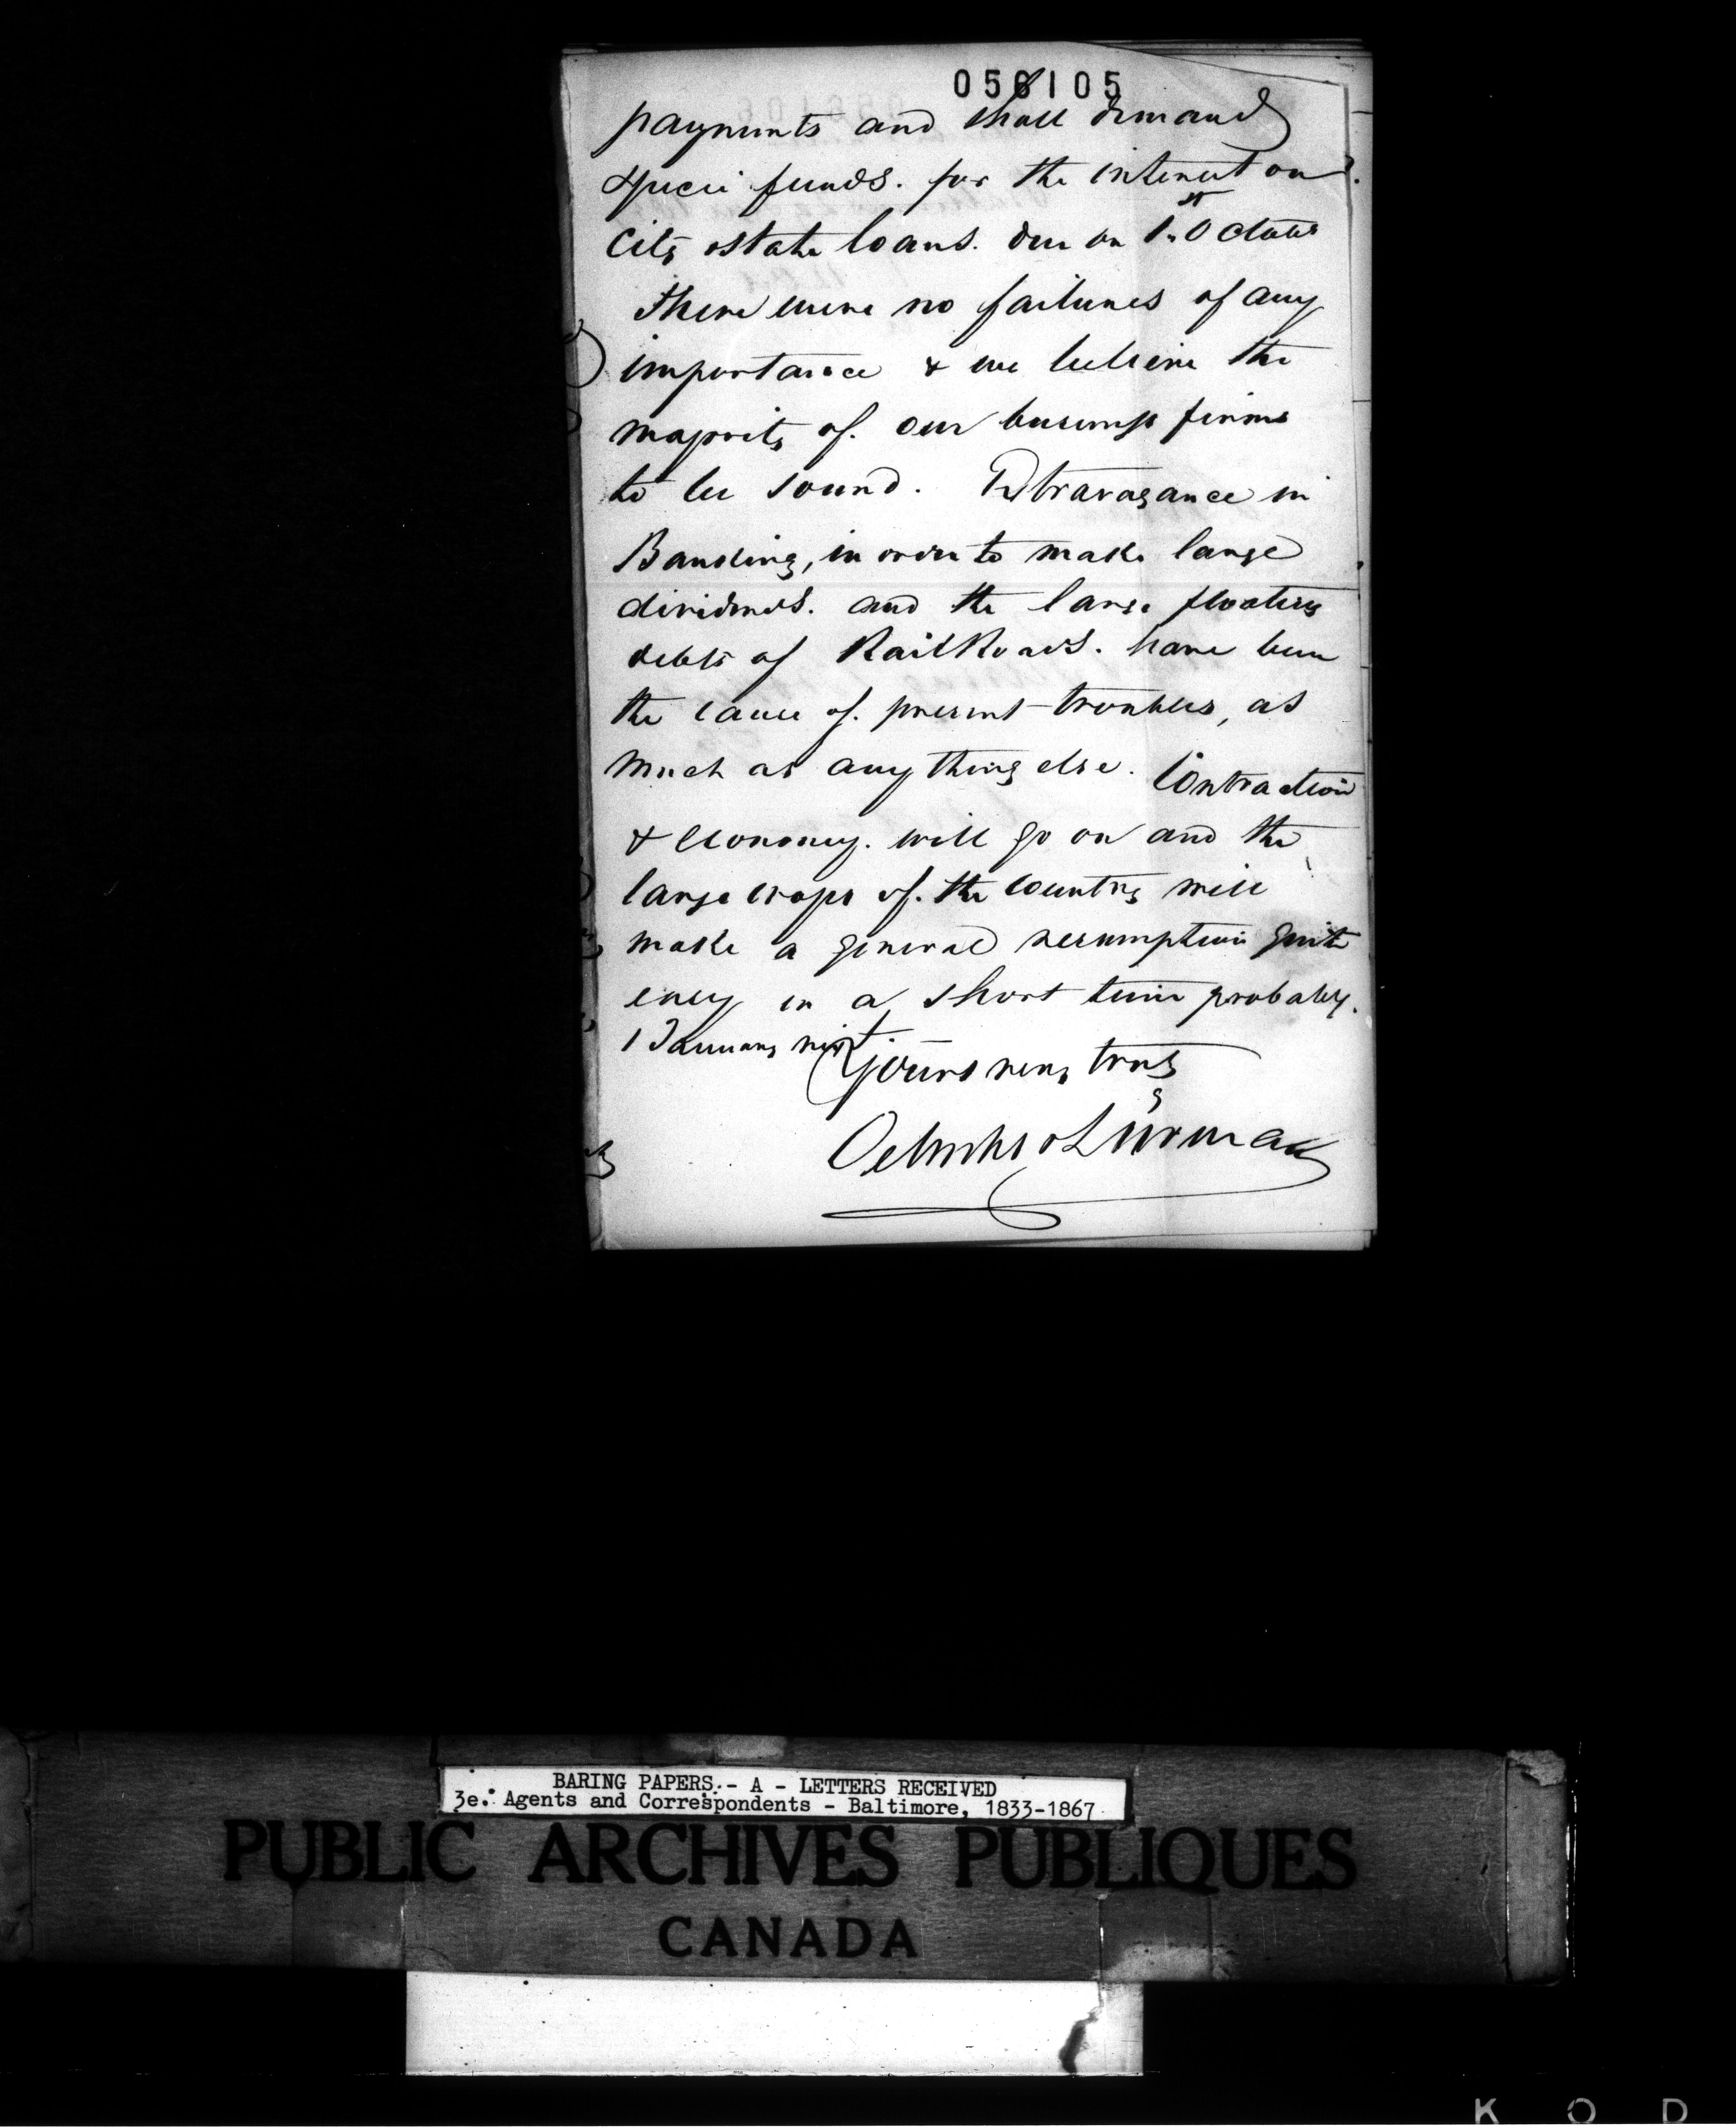 056105
payments and shall demand
specie funds. for the interest on
City & State loans. due on 1st October
There were no failures of any
importance & we believe the
majority of. our business firms
to be sound. Extravagance in
Banking, in order to make large
dividends. and the large floating
debts of RailRoads. have been
the cause of. present troubles, as
much as anything else. Contraction
& economy. will go on and the
large crops of. the Country will
make a general resumption quite
easy in a short time probably.
1 January next.
Yours very truly
Oelrichs & Lurman
BARING PAPERS.- A - LETTERS RECEIVED
3e. Agents and Correspondents - Baltimore, 1833-1867
PUBLIC ARCHIVES PUBLIQUES
CANADA
K O D